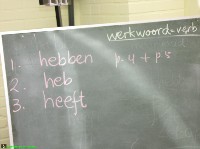 werkwoord = verb
1. hebben p. 4 + p 8
2. heb
3. heeft